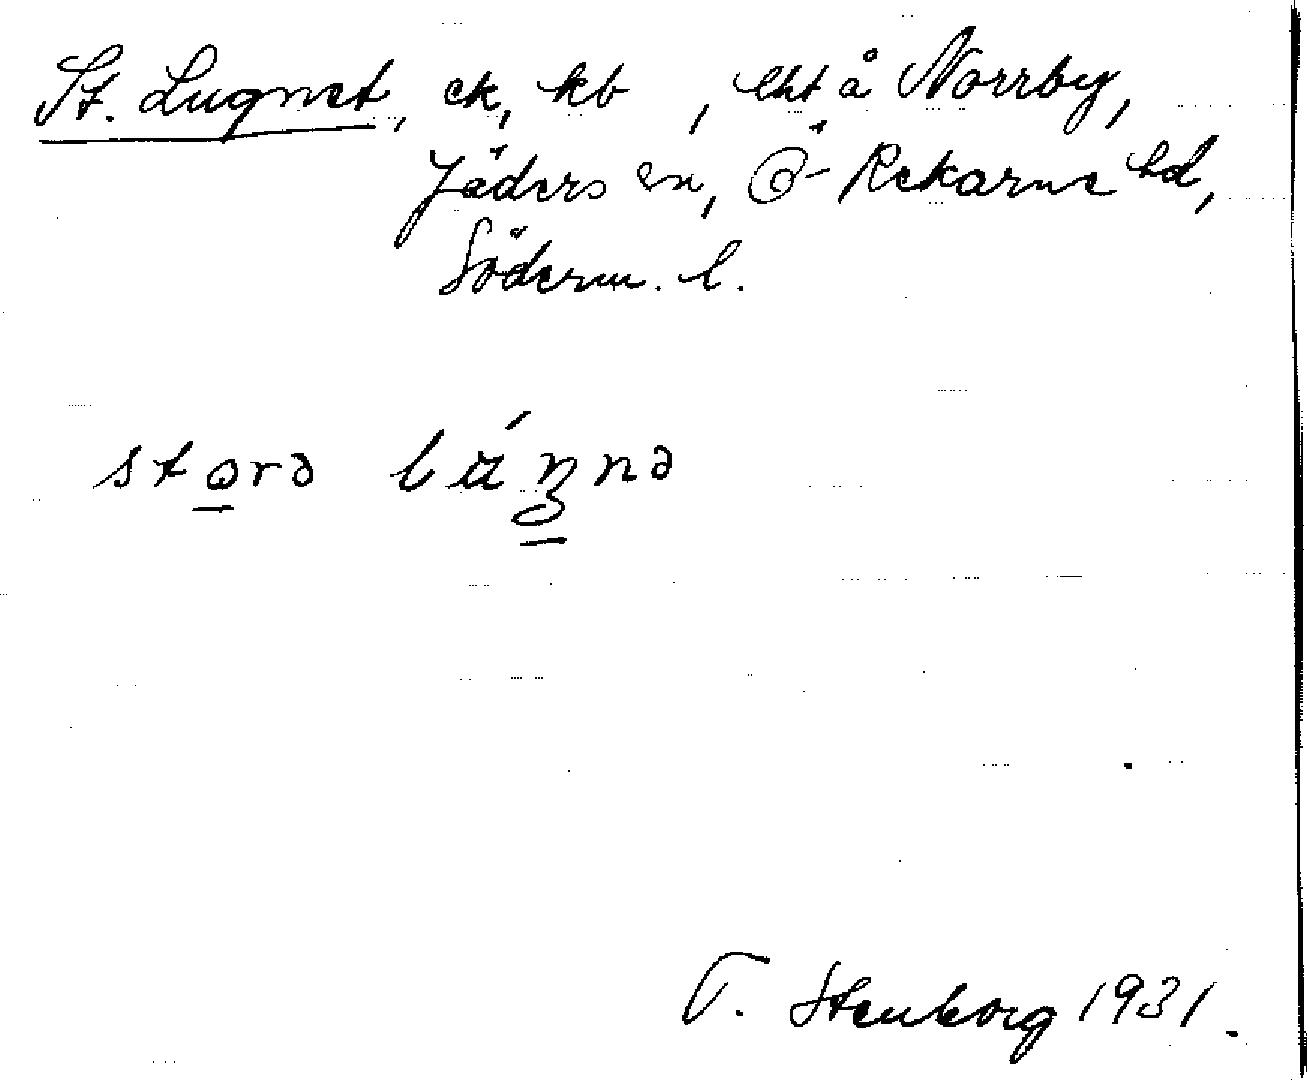 St. Lugnet, ek, kb , lht å Norrby,
Jäders sn, Ö-Rekarne hd,
Söderm. l.
storə lúŋnə
T. Stenborg 1931.